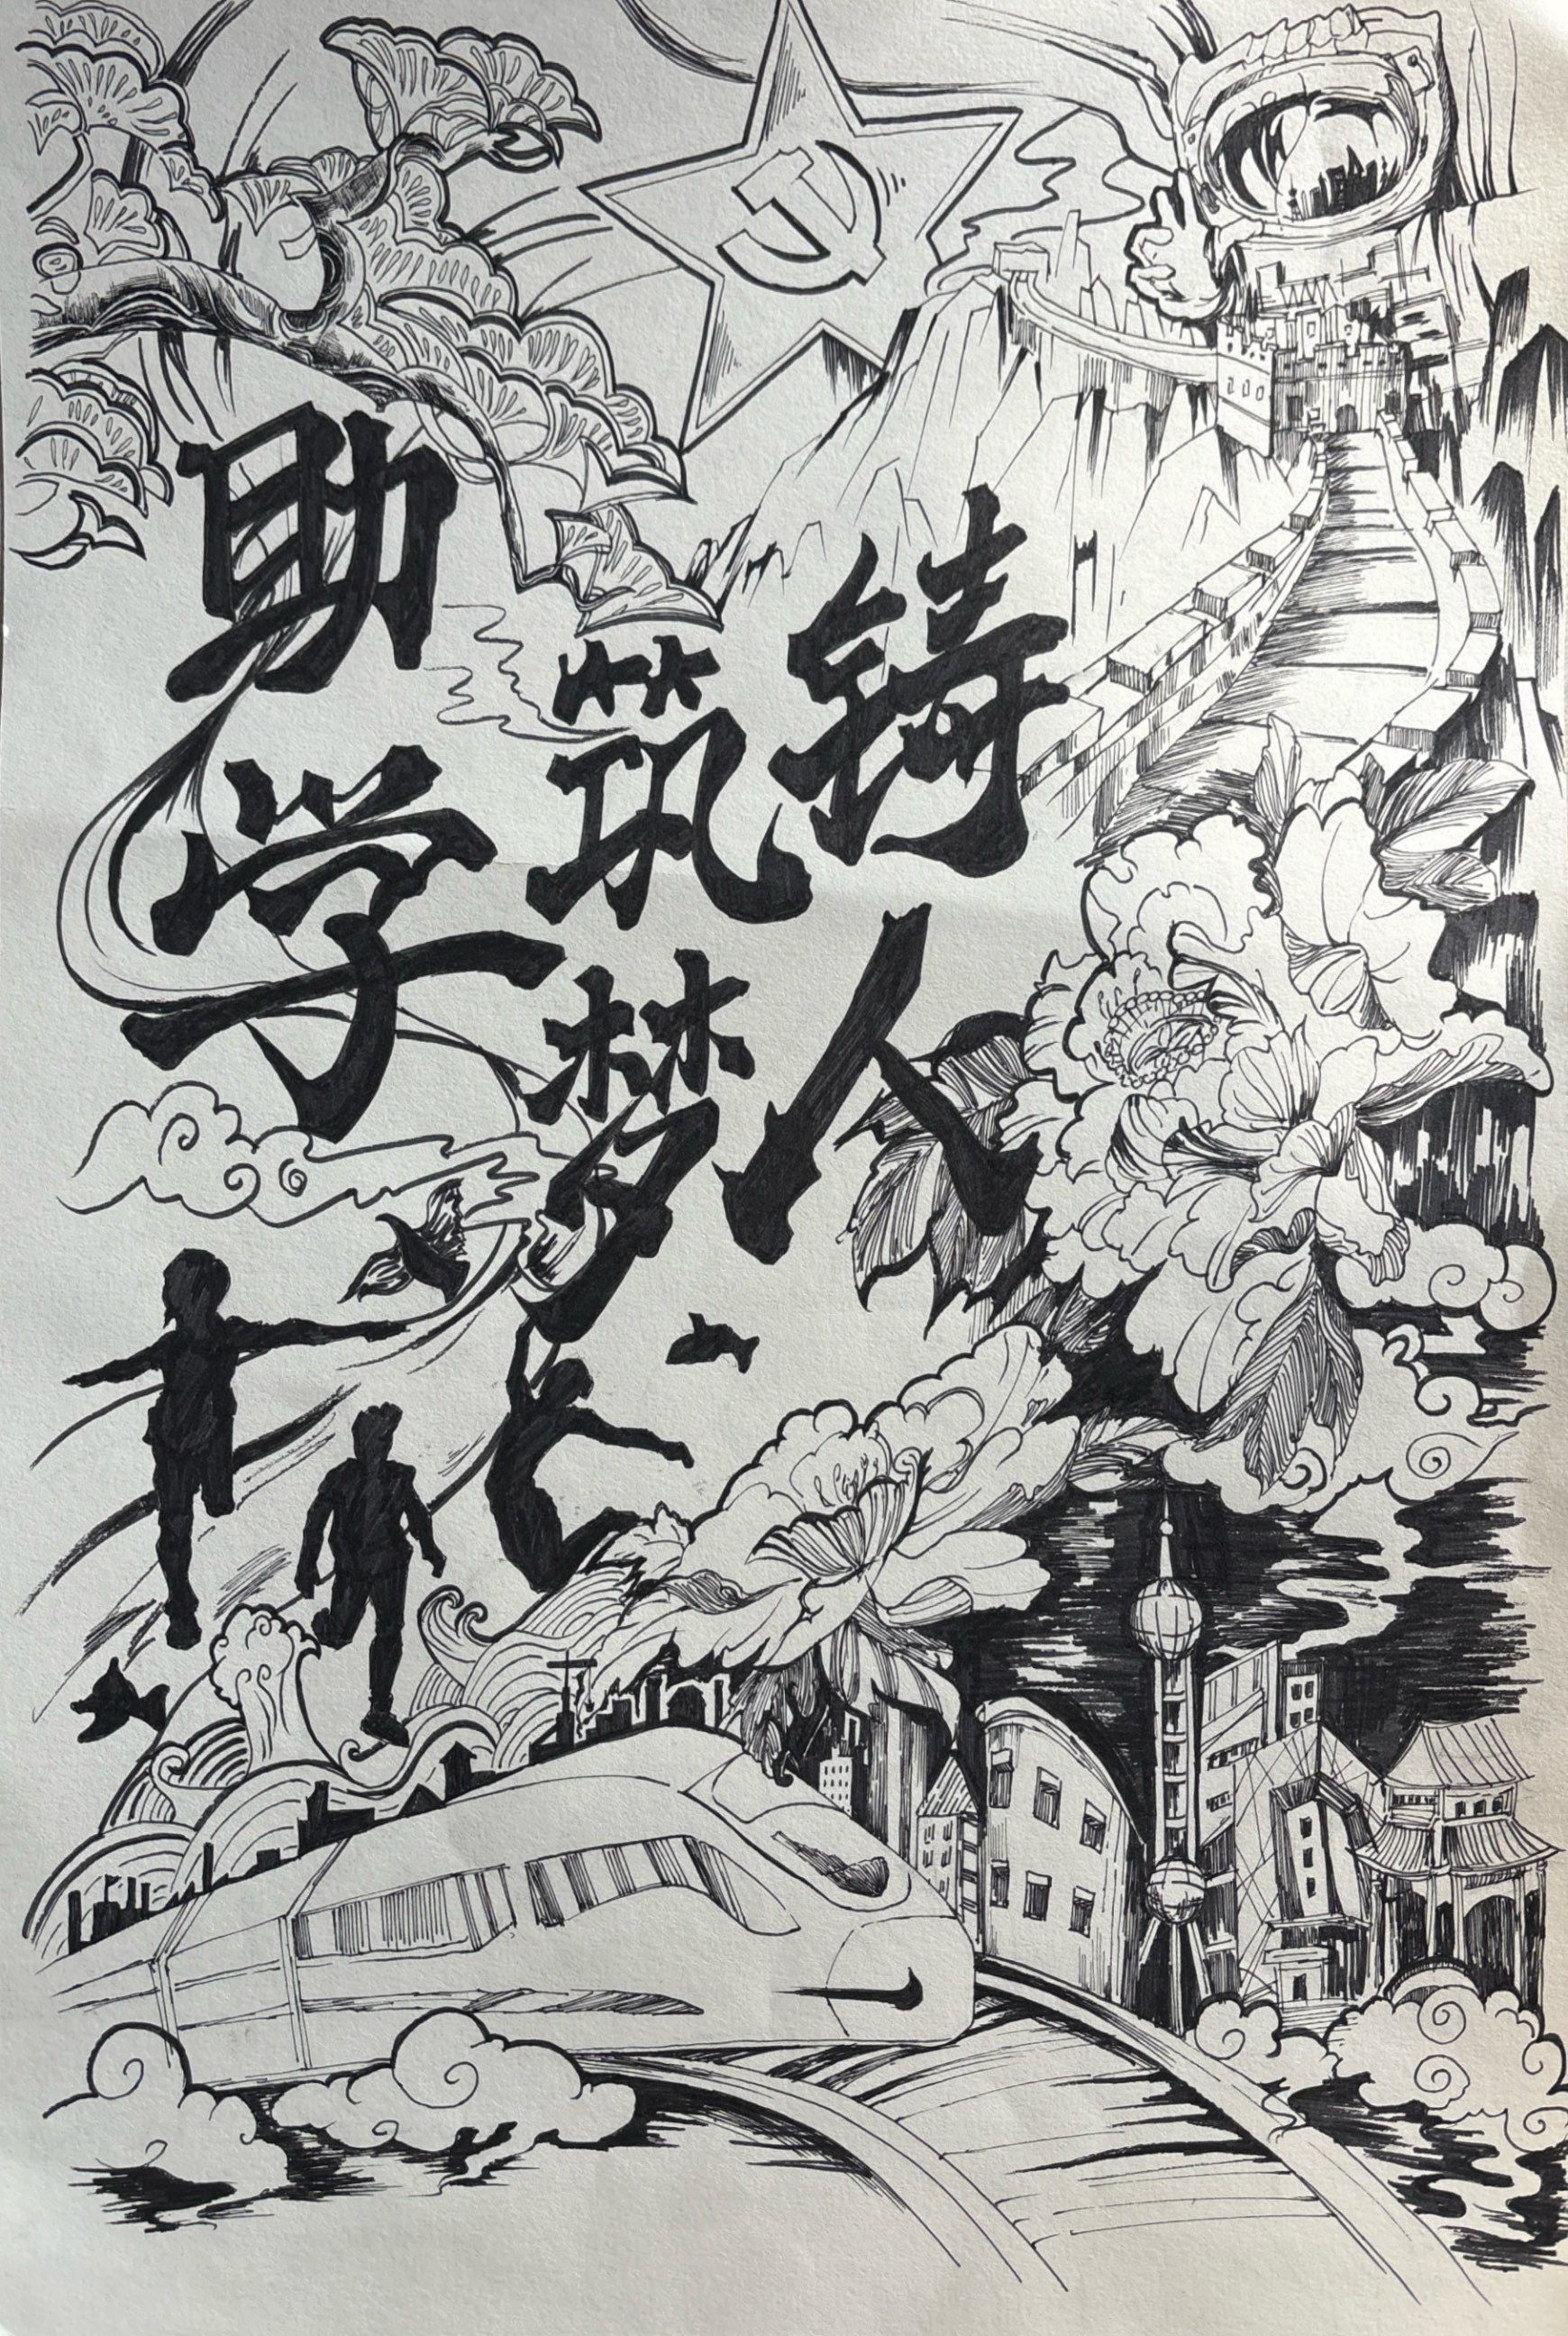 助学
筑梦
铸人